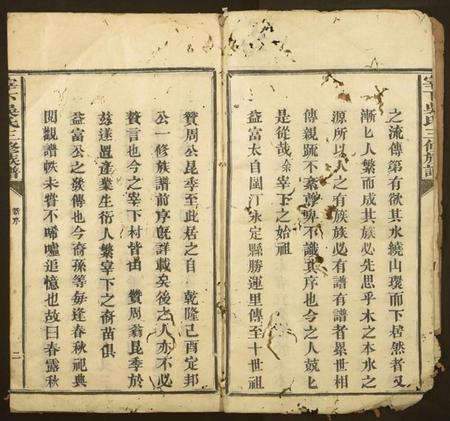 之流傳第有欲其水繞山環而下居然者又
漸匕人繁而成其族必先思乎木之本水之
源所以人之有族族必有譜有譜者累世相
傳親疏不紊尊卑不識其序也今之人兢匕
是從哉余宰下之始祖
益富太自閩汀永定縣勝運里傳至十世祖
贊周公昆季至此居之自 乾隆己酉定邦
公一修族譜前序旣詳載矣後之人亦不必
贅言也今之宰下村皆由 贊周翁昆季於
茲遂置產業生衍人繁宰下之裔苗俱
益富公之發傳也今裔孫等每逢春秋祀典
閱觀譜帙未嘗不唏噓追憶也故曰春露秋
宰下吳氏三修族譜
新序
二
宰下吳氏三修族譜